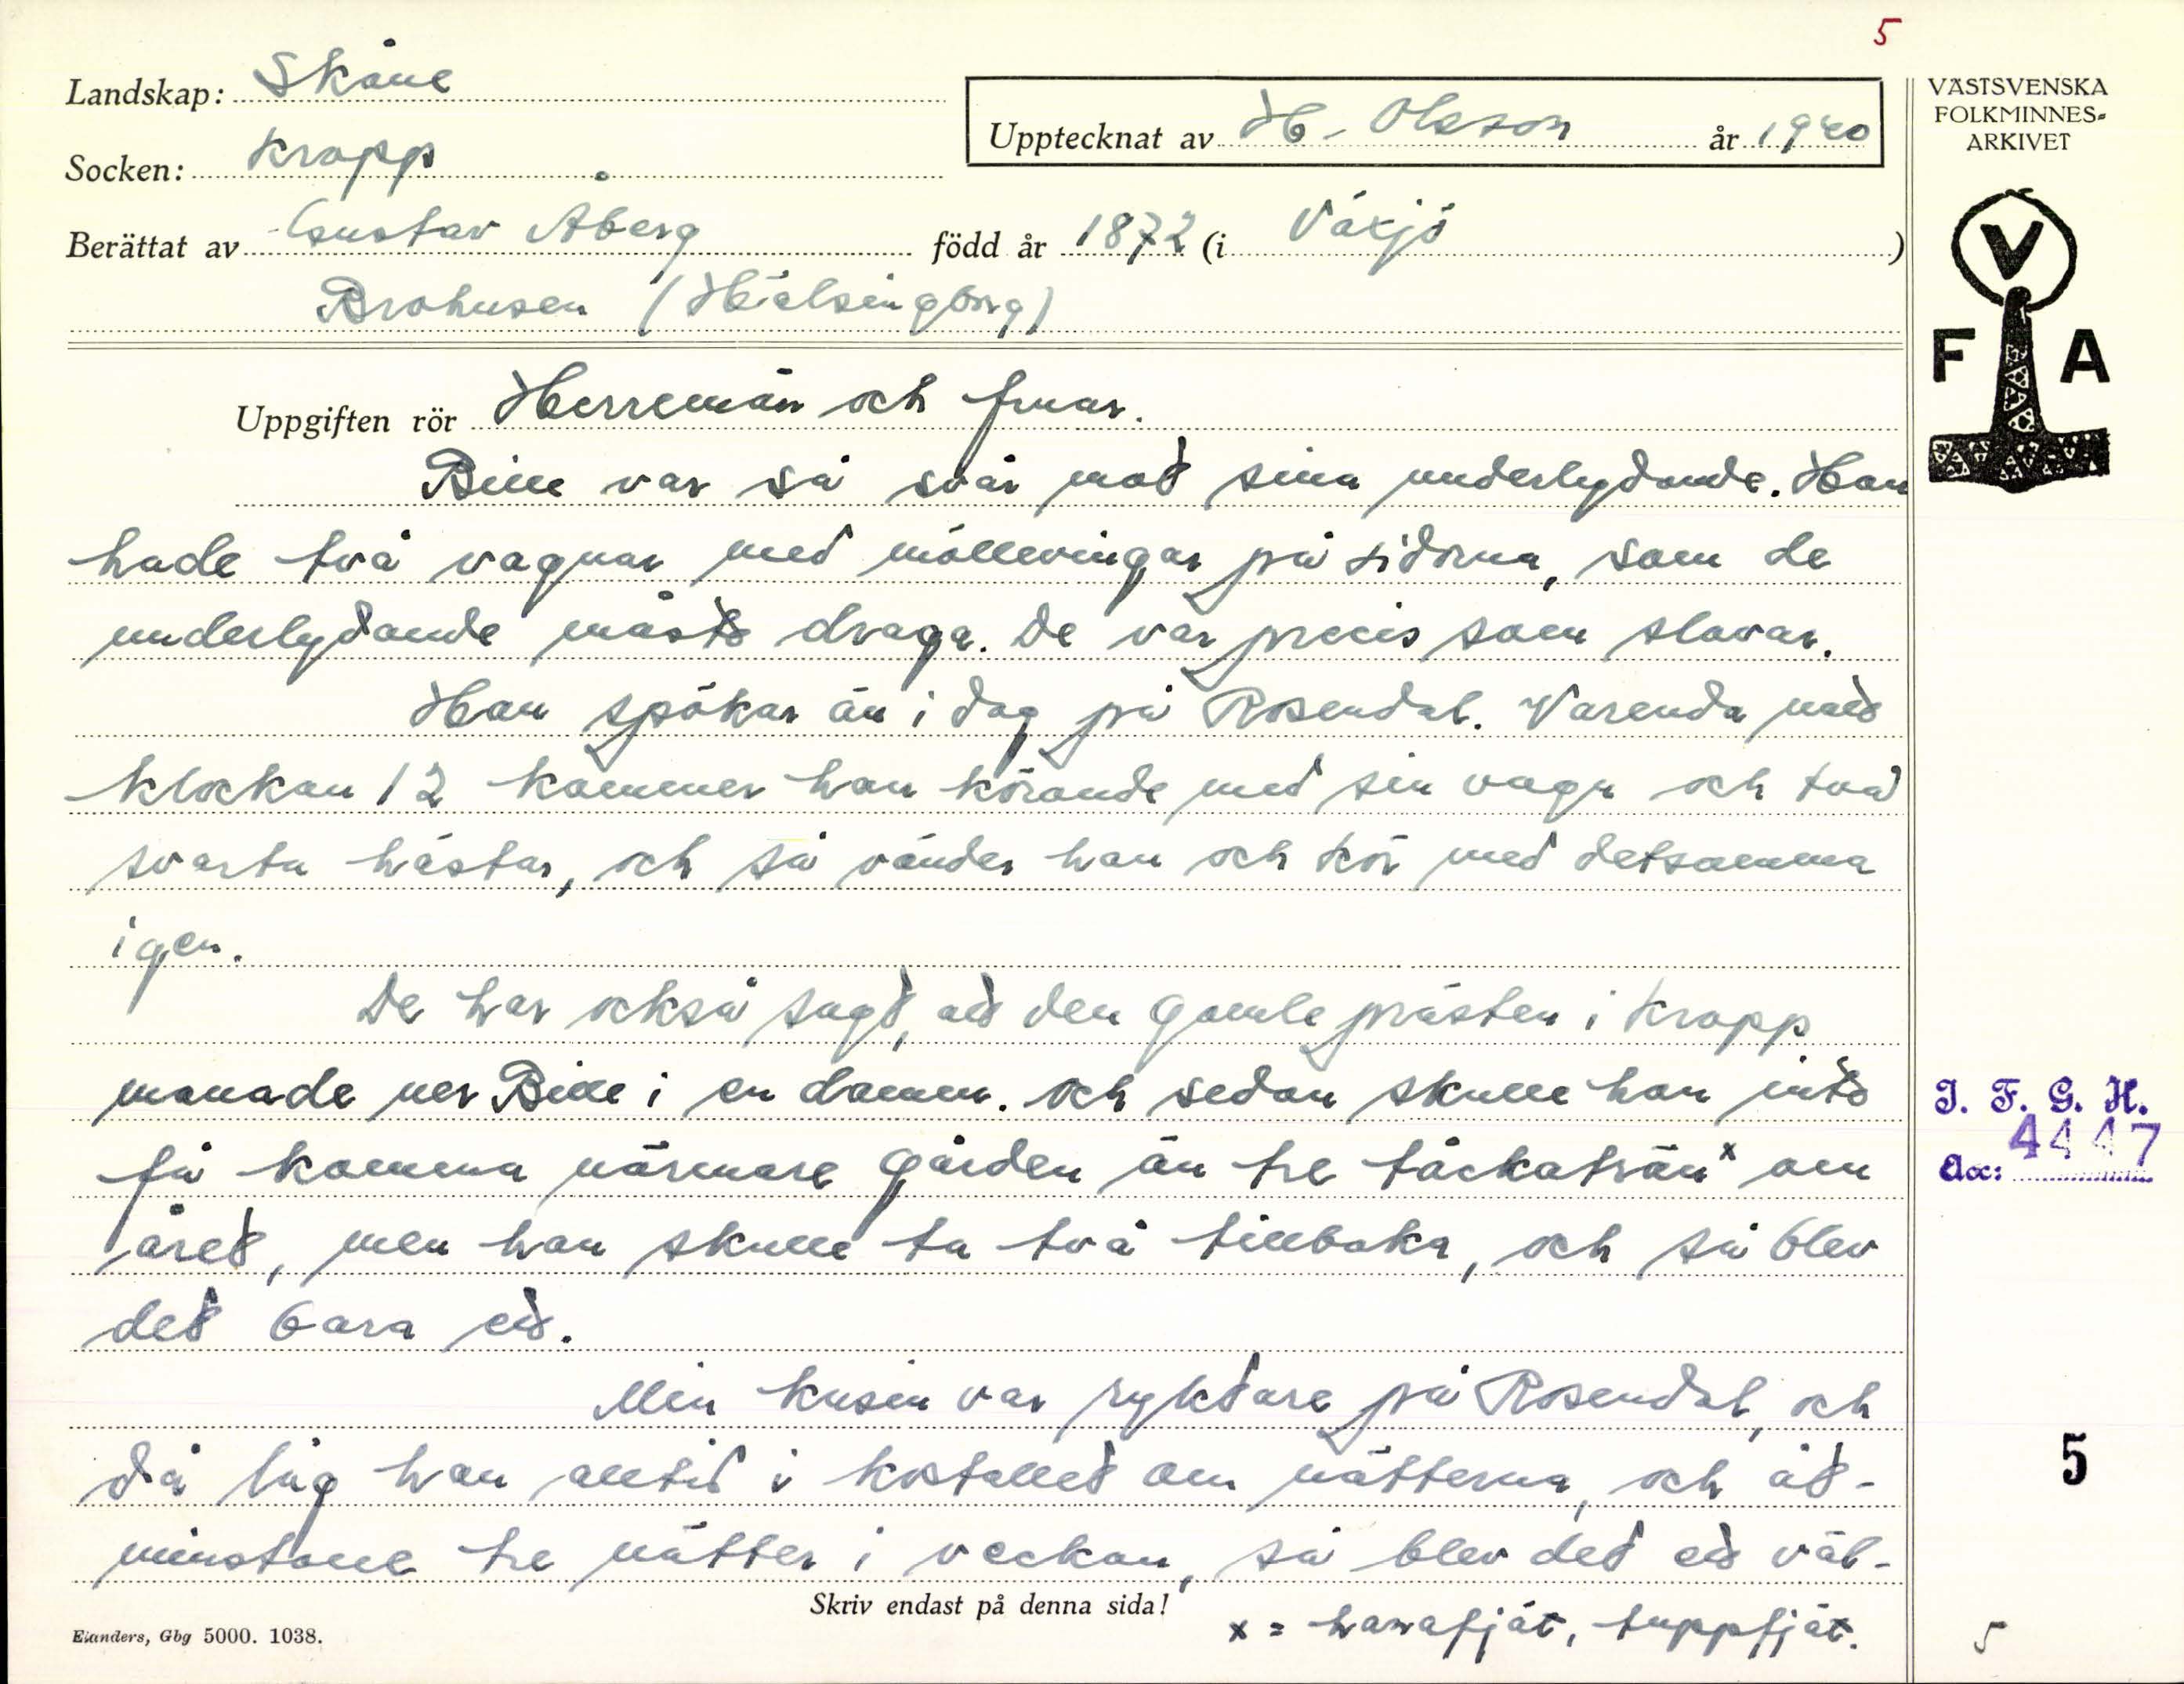 5
Landskap: Skåne
VÄSTSVENSKA
FOLKMINNES-
ARKIVET
Upptecknat av H. Olsson år 1940
Socken: Kropp
Berättat av Gustav Åberg född år 1872 (i Växjö)
Brohusen (Hälsingborg)
V
F A
Uppgiften rör Herremän och fruar.
Bille var så svår mot sina underlydande. Han
hade två vagnar med möllevingar på sidorna, som de
underlydande måste draga. De var precis som slavar.
Han spökar än i dag på Rosendal. Varenda natt
klockan 12 kommer han körande med sin vagn och två
svarta hästar, och så vänder han och kör med detsamma
igen.
De har också sagt, att den gamle prästen i Kropp
manade ner Bille i en damm. Och sedan skulle han inte
få komma närmare gården än tre tåckaträn x om
året, men han skulle ta två tillbaka, och så blev
det bara ett.
Min kusin var ryktare på Rosendal, och
då låg han alltid i kostallet om nätterna, och åt-
minstone tre nätter i veckan, så blev det ett väl-
Skriv endast på denna sida!
x = hanafjät, tuppfjät.
Elanders, Gbg 5000. 1038.
I. F. G. H.
Acc: 4447
5
5